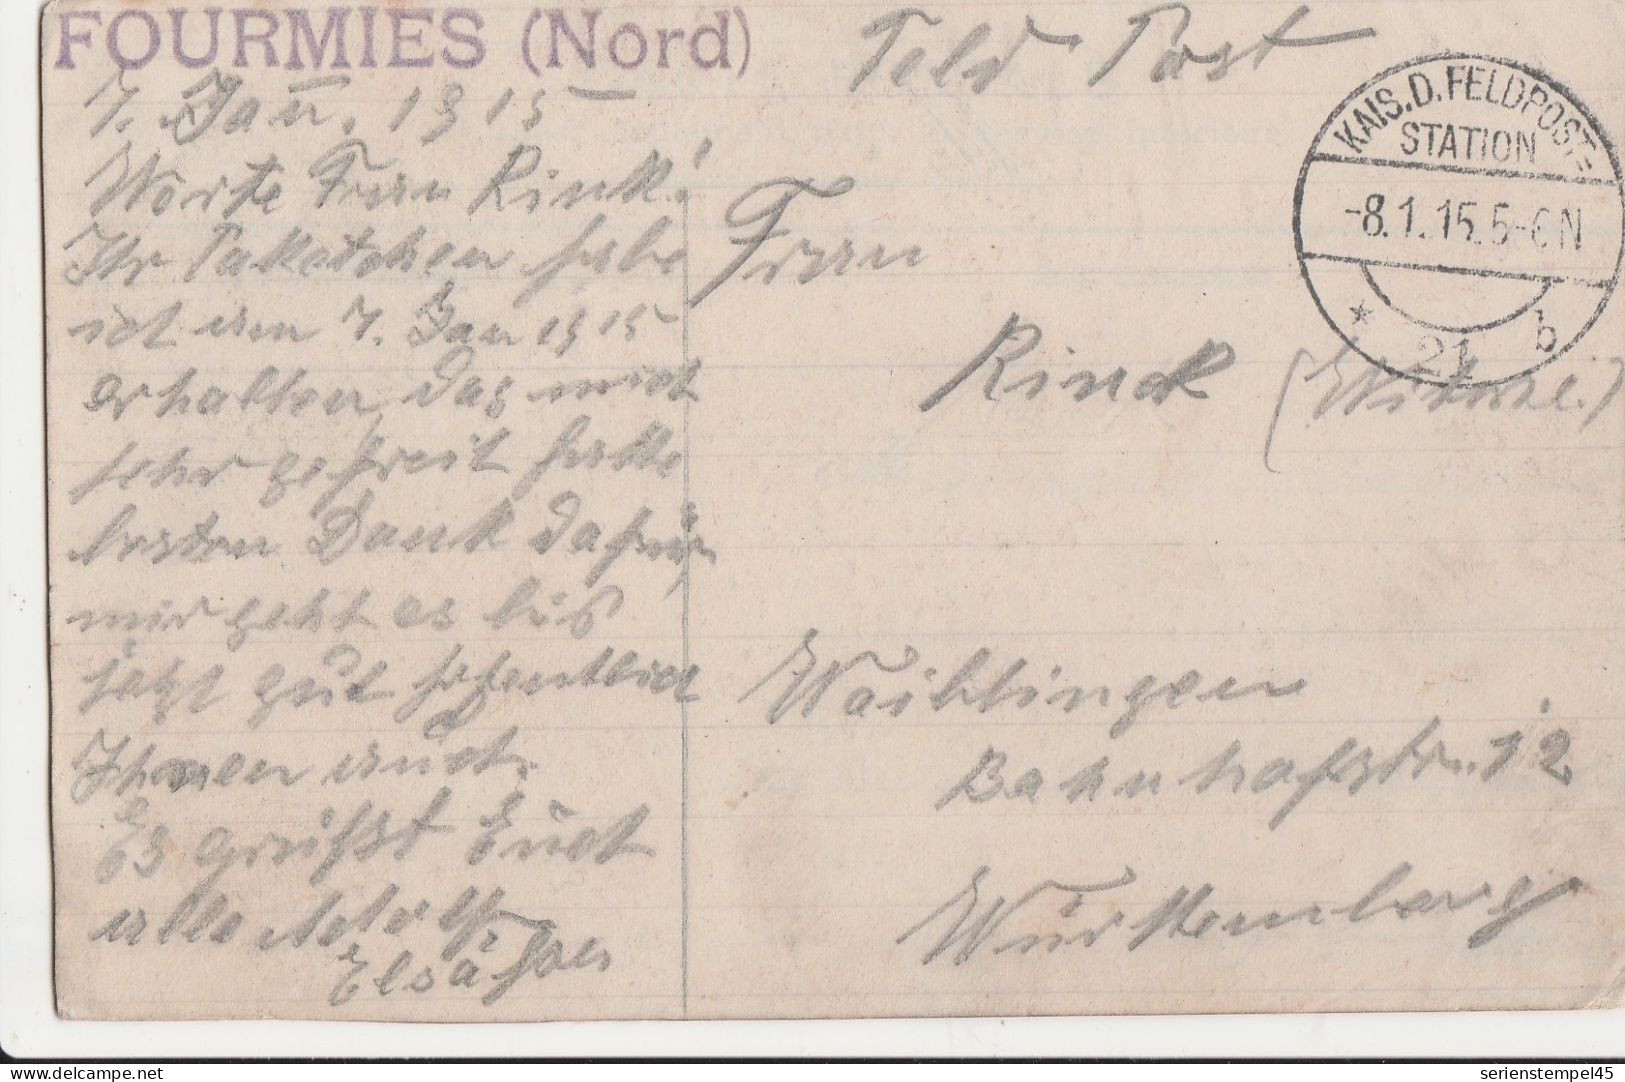 FOURMIES (Nord)
Feld Post
KAIS. D. FELDPOST=
STATION
-8.1.15.5-6N
* 21 b
7. Jan. 1915
Werte Frau Rink!
Ihr Paketchen habe
ich am 7. Jan 1915
erhalten, das mich
sehr gefreit hatte
besten Dank dafür,
mir geht es bis
jetzt gut hofentlich
Ihnen auch.
Es grüßt Euch
alle Adolf
Elsäßer
Frau
Rinck
Waiblingen
Bahnhofstr. 12
Württemberg
serienstempel45